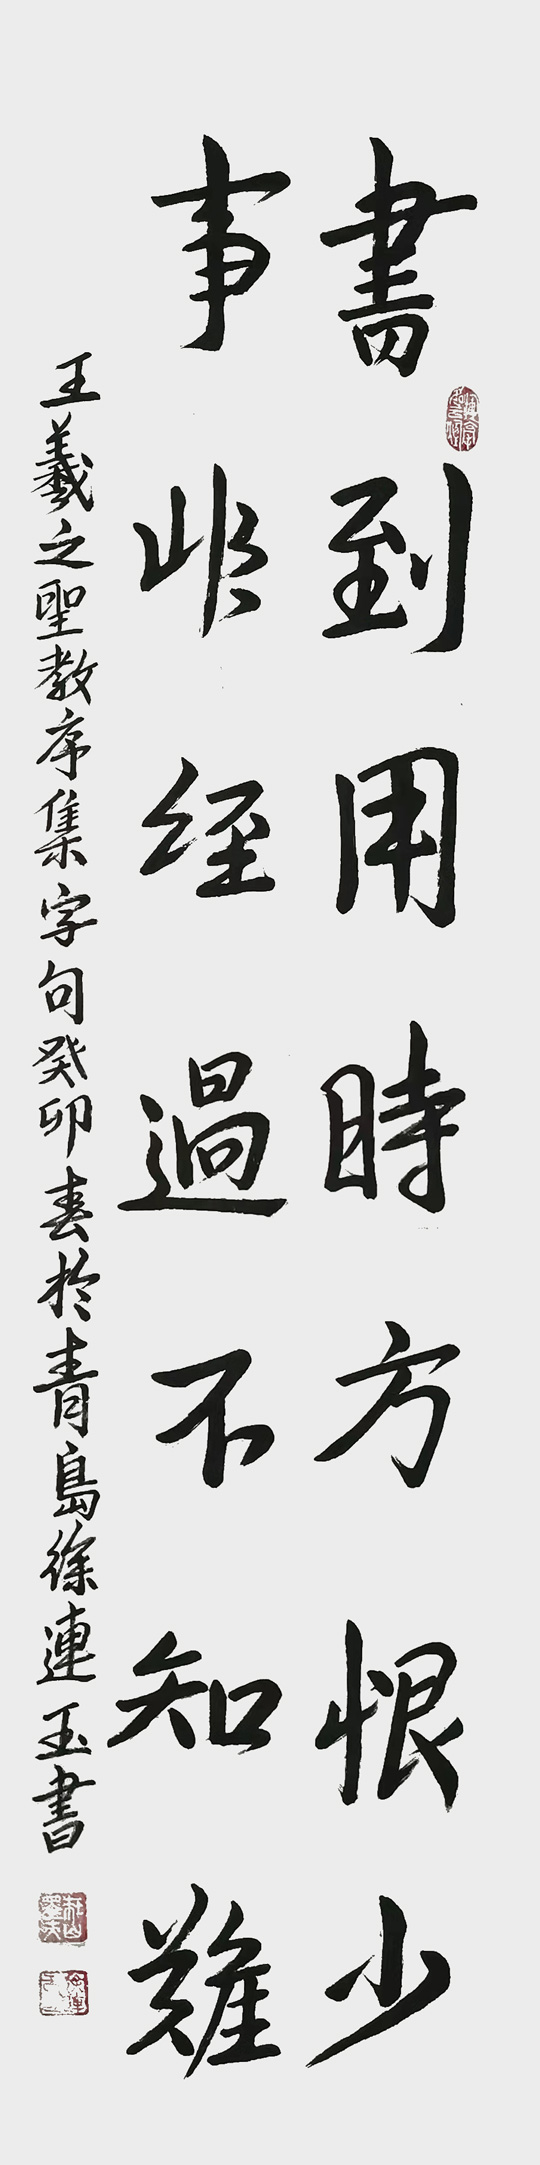 書到用時方恨少
事非經過不知難
王羲之聖教序集字句癸卯春於青島徐連玉書